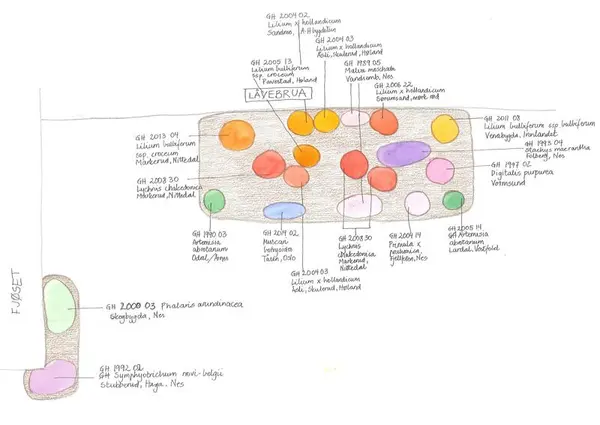 GH 2004 02
Lilium x hollandicum
Sandmo,
GH 2004 03
Lilium x hollandicum
Åsli, Skulerud, Høland
GH 2005 13
Lilium bulbiferum
ssp. croceum
Høland
GH 1989 05
Malva moschata
Nes
LÅVEBRUA
GH 2006 22
Lilium x hollandicum
GH 2011 08
Lilium bulbiferum ssp. bulbiferum
Venabygda,
GH 2013 04
Lilium bulbiferum
ssp. croceum
Markerud, Nittedal
GH 1993 04
Stachys macrantha
Nes
GH 1997 02
Digitalis purpurea
Vormsund
GH 2008 30
Lychnis chalcedonica
Markerud, Nittedal
GH 1990 03
Artemisia
abrotanum
Odal/Årnes
GH 2014 02
Muscari
botryoides
Tåsen, Oslo
GH 2008 30
Lychnis
chalcedonica
Markerud,
Nittedal
GH 2004 14
Primula x
Nes
GH 2005 14
GH Artemisia
abrotanum
Lardal, Vestfold
GH 2004 03
Lilium x hollandicum
Åsli, Skulerud, Høland
FJØSET
GH 2000 03 Phalaris arundinacea
Skogbygda, Nes
GH 1992 02
GH Symphyotrichum novi-belgii
Stubberud, Haga, Nes